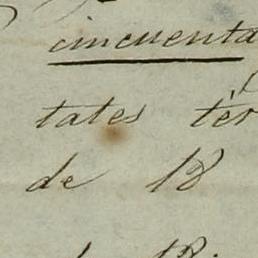 cincuenta
tates tér
de 18